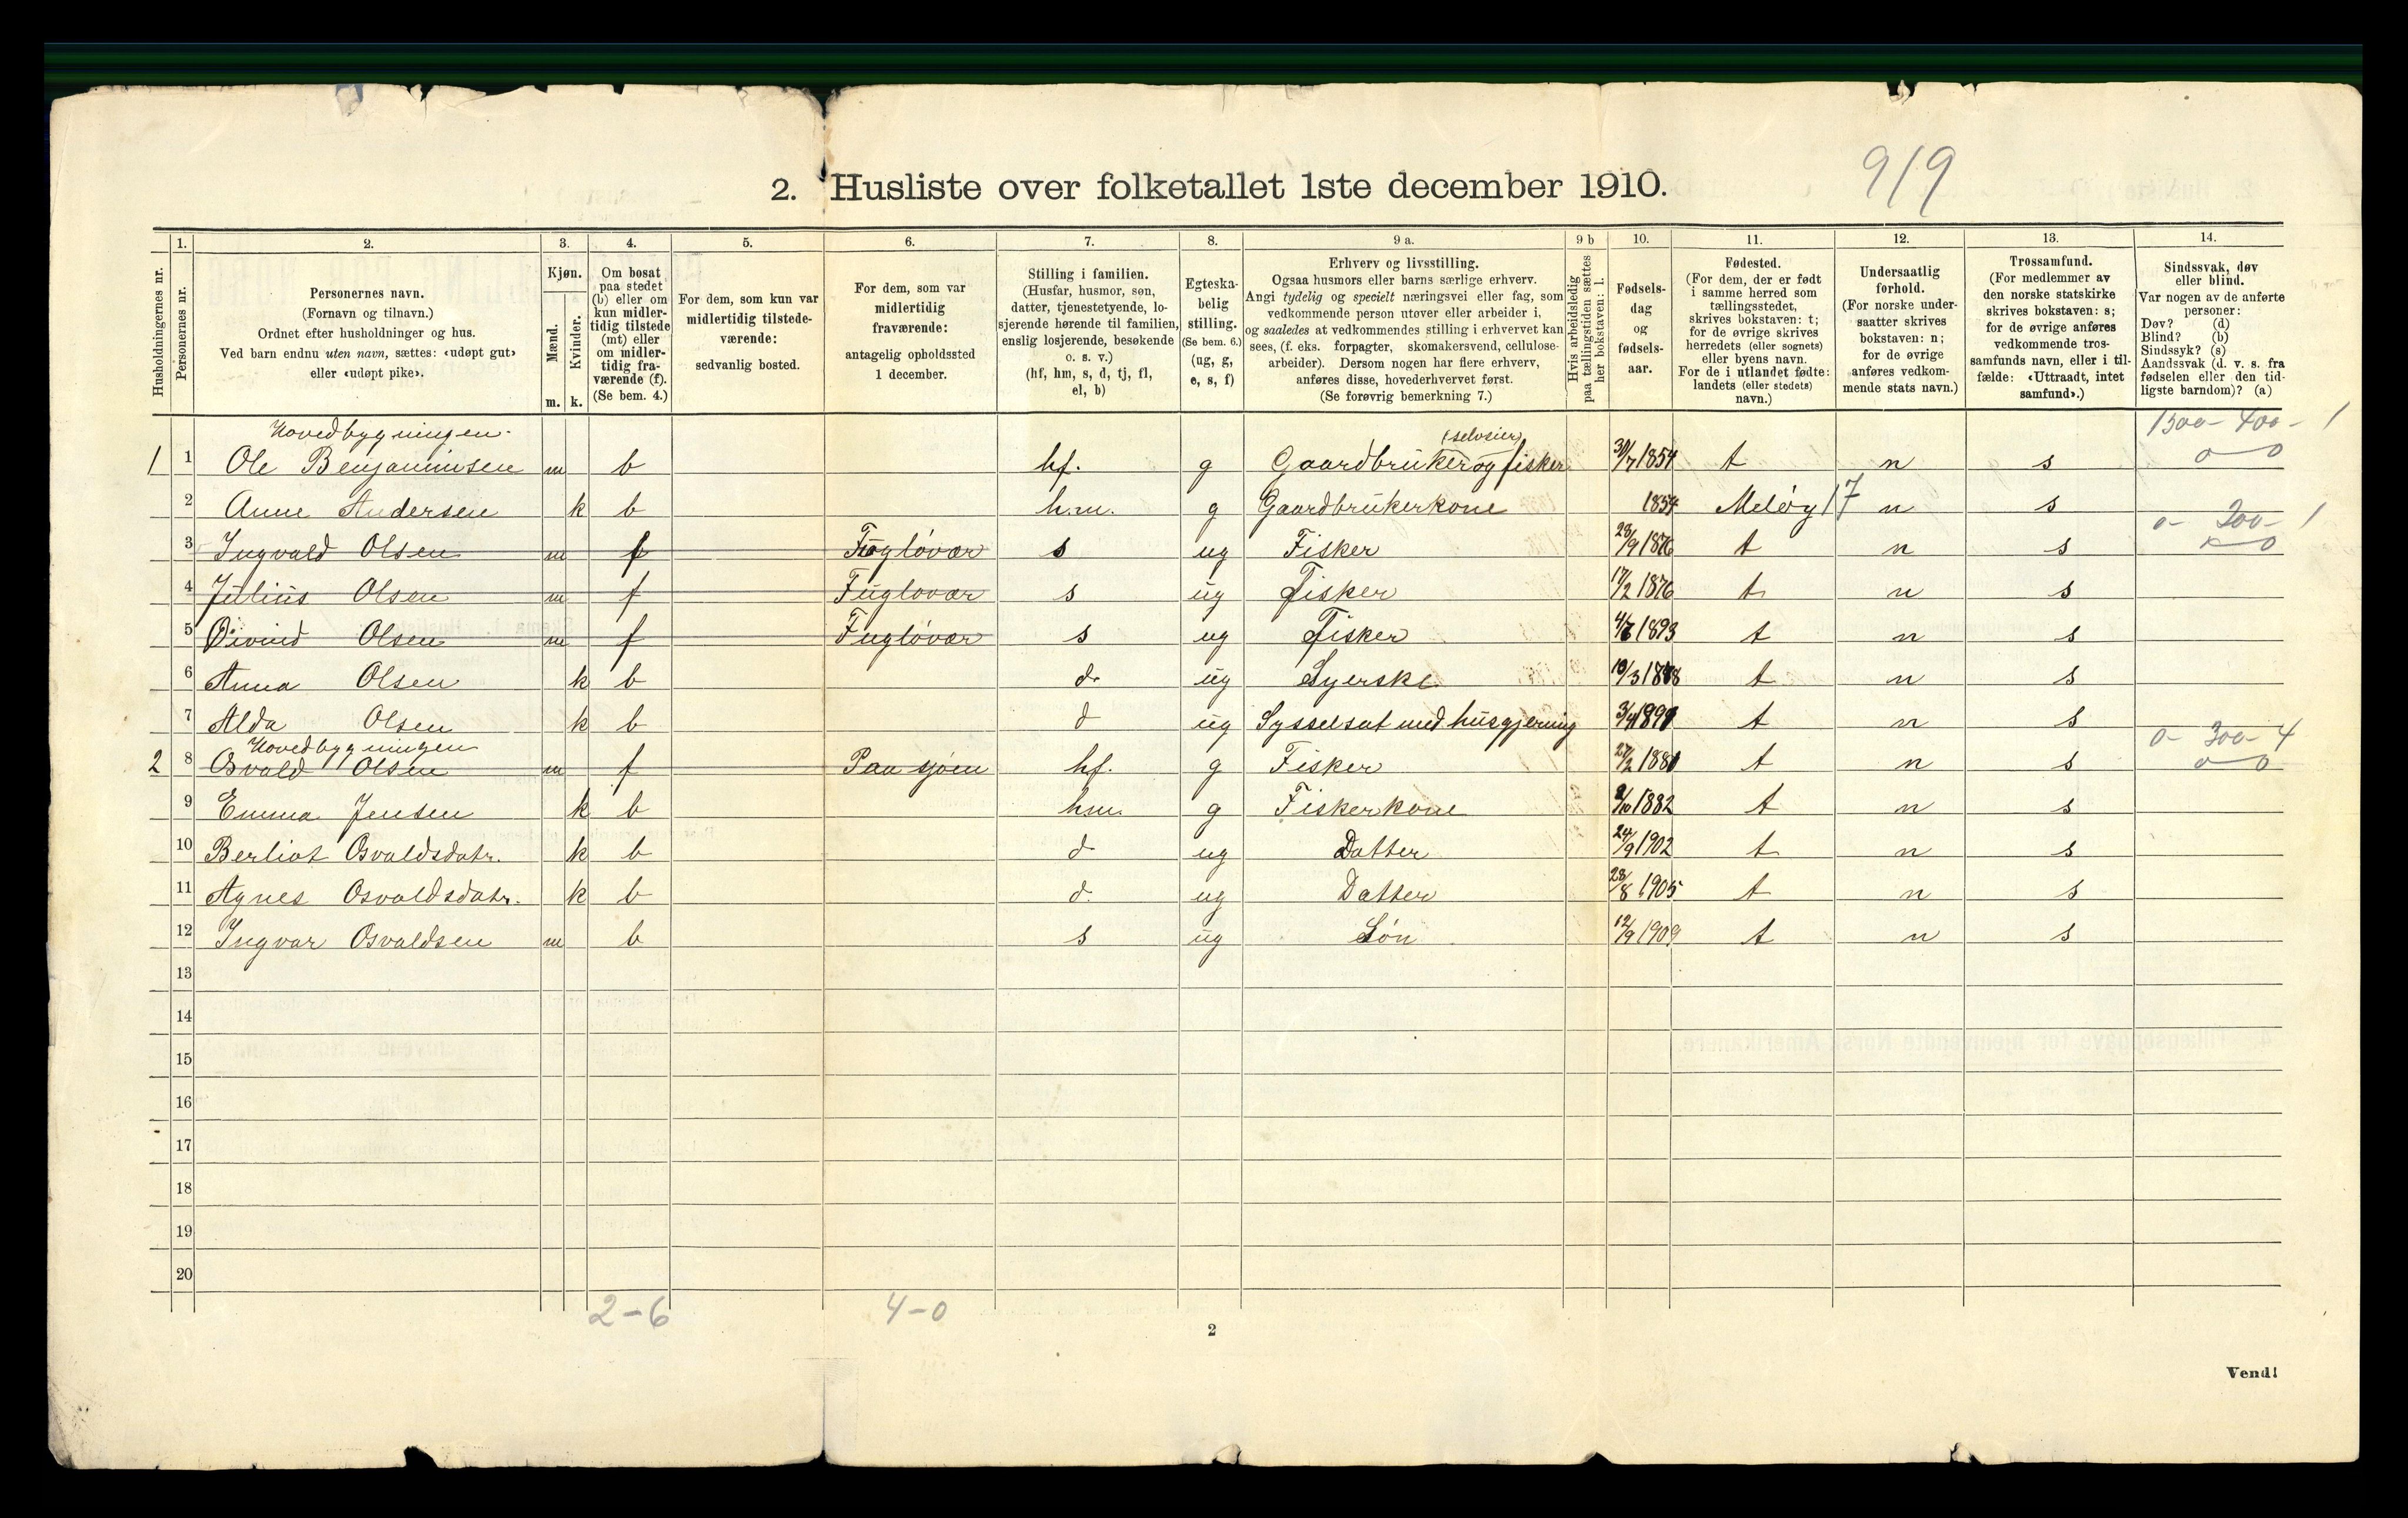 2. Husliste over folketallet 1ste december 1910.
9/9
Husholdningernes nr.
1. Personernes nr.
2. Personernes navn. (Fornavn og tilnavn.) Ordnet efter husholdninger og hus. Ved barn endnu uten navn, sættes: «udøpt gut» eller «udøpt pike».
3. Kjøn. Mænd. m. Kvinder. k.
4. Om bosat paa stedet (b) eller om kun midlertidig tilstede (mt) eller om midlertidig fraværende (f). (Se bem. 4.)
5. For dem, som kun var midlertidig tilstedeværende: sedvanlig bosted.
6. For dem, som var midlertidig fraværende: antagelig opholdssted 1 december.
7. Stilling i familien. (Husfar, husmor, søn, datter, tjenestetyende, losjerende hørende til familien, enslig losjerende, besøkende o. s. v.) (hf, hm, s, d, tj, fl, el, b)
8. Egteskabelig stilling. (Se bem. 6.) (ug, g, e, s, f)
9 a. Erhverv og livsstilling. Ogsaa husmors eller barns særlige erhverv. Angi tydelig og specielt næringsvei eller fag, som vedkommende person utøver eller arbeider i, og saaledes at vedkommendes stilling i erhvervet kan sees, (f. eks. forpagter, skomakersvend, cellulosearbeider). Dersom nogen har flere erhverv, anføres disse, hovederhvervet først. (Se forøvrig bemerkning 7.)
9 b Hvis arbeidsledig paa tællingstiden sættes her bokstaven: l.
10. Fødselsdag og fødselsaar.
11. Fødested. (For dem, der er født i samme herred som tællingsstedet, skrives bokstaven: t; for de øvrige skrives herredets (eller sognets) eller byens navn. For de i utlandet fødte: landets (eller stedets) navn.)
12. Undersaatlig forhold. (For norske undersaatter skrives bokstaven: n; for de øvrige anføres vedkommende stats navn.)
13. Trossamfund. (For medlemmer av den norske statskirke skrives bokstaven: s; for de øvrige anføres vedkommende trossamfunds navn, eller i tilfælde: «Uttraadt, intet samfund».)
14. Sindssvak, døv eller blind. Var nogen av de anførte personer: Døv? (d) Blind? (b) Sindssyk? (s) Aandssvak (d. v. s. fra fødselen eller den tidligste barndom)? (a)
Hovedbygningen. (selveier) 1500- 400- 1
1 1 Ole Benjaminsen m b hf. g Gaardbruker og fisker 30/7 1854 t n s 0-0
2 Anne Andersen k b h.m. g Gaardbrukerkone 1854 Meløy 17 n s
0- 200- 1
3 Ingvald Olsen m f Fugløvær s ug Fisker 28/9 1876 t n s 0
4 Julius Olsen m f Fugløvær s ug Fisker 17/2 1876 t n s
5 Øivind Olsen m f Fugløvær s ug Fisker 1893 t n s
6 Anna Olsen k b d. ug Syerske t n s
7 Alda Olsen k b d ug Sysselsat med husgjerning t n s
Hovedbygningen 0- 300- 4
2 8 Osvald Olsen m f Paa sjøen hf. g Fisker 27/2 t n s 0-0
9 Emma Jensen k b hm. g Fiskerkone 1882 t n s
10 Berliot Osvaldsdatr. k b d ug Datter 24/9 1902 t n s
11 Agnes Osvaldsdatr. k b d. ug Datter 28/8 1905 t n s
12 Ingvar Osvaldsen m b s ug Søn 12/9 1909 t n s
13
14
15
16
17
18
19
20
2-6 4-0
2
Vend!